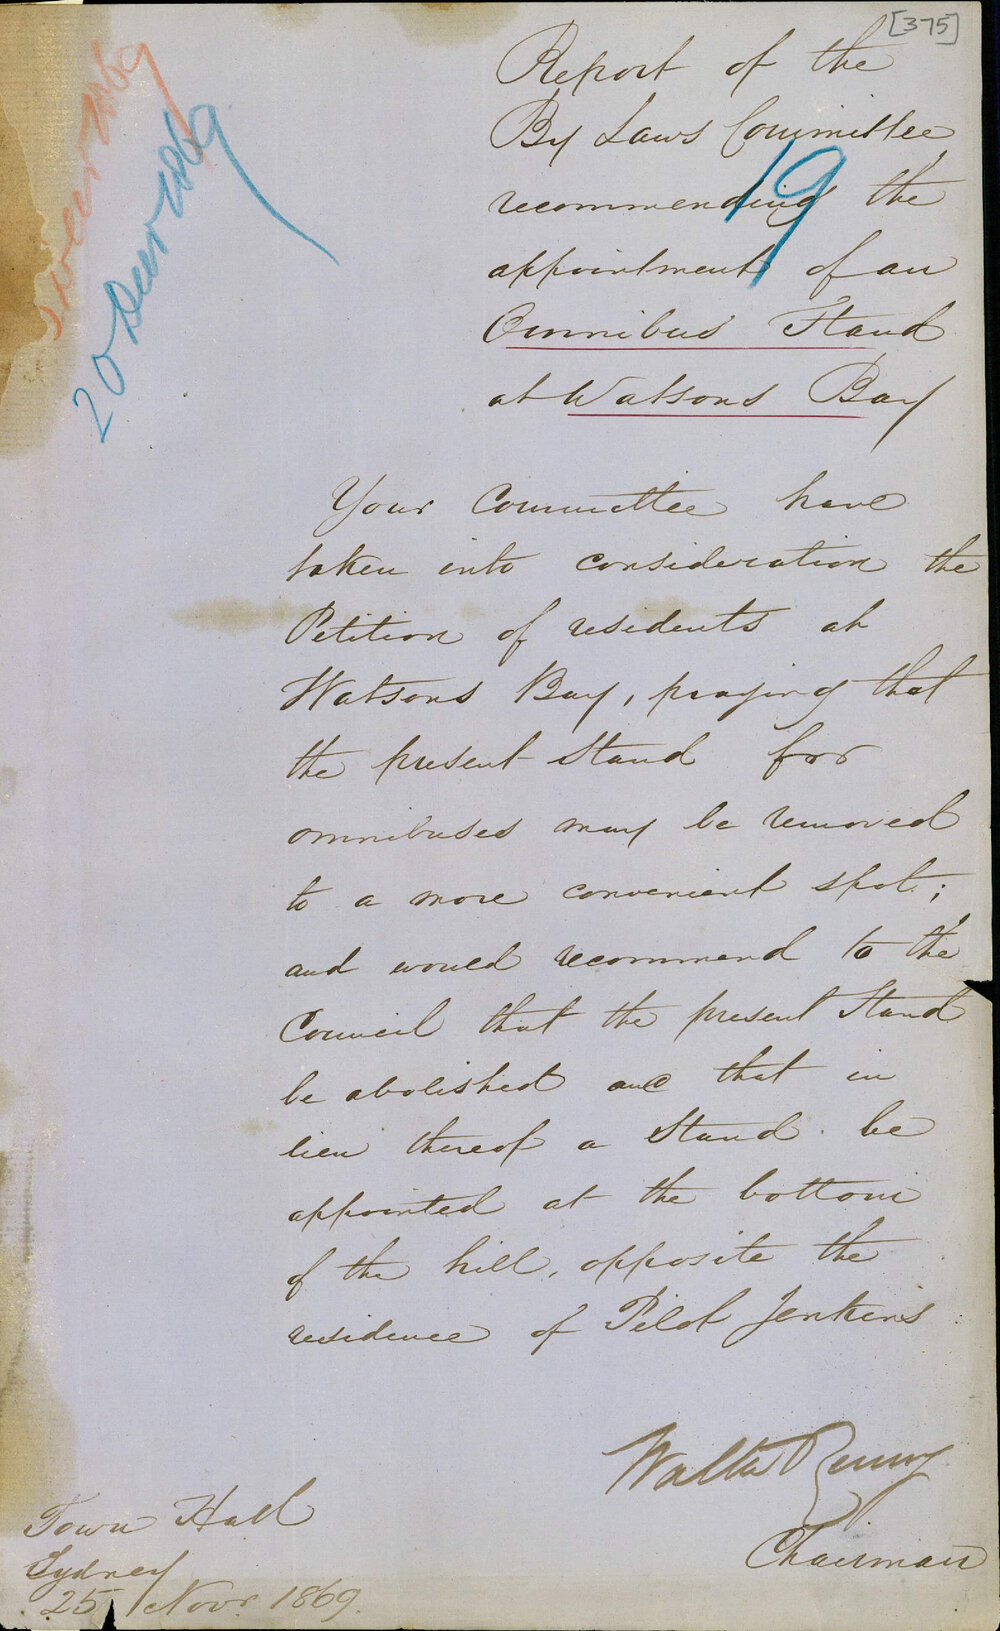 [375]
20 Decr 1869
19
Report of the
By Laws Committee
recommending the
appointment of an
Omnibus Stand
at Watsons Bay
Your Committee have
taken into consideration the
Petition of residents at
Watsons Bay, praying that
the present Stand for
omnibuses may be removed
to a more convenient spot;
and would recommend to the
Council that the present Stand
be abolished and that in
lieu thereof a Stand be
appointed at the bottom
of the hill, opposite the
residence of Pilot Jenkins
Walter Renny
Chairman
Town Hall
Sydney
25 Novr 1869.